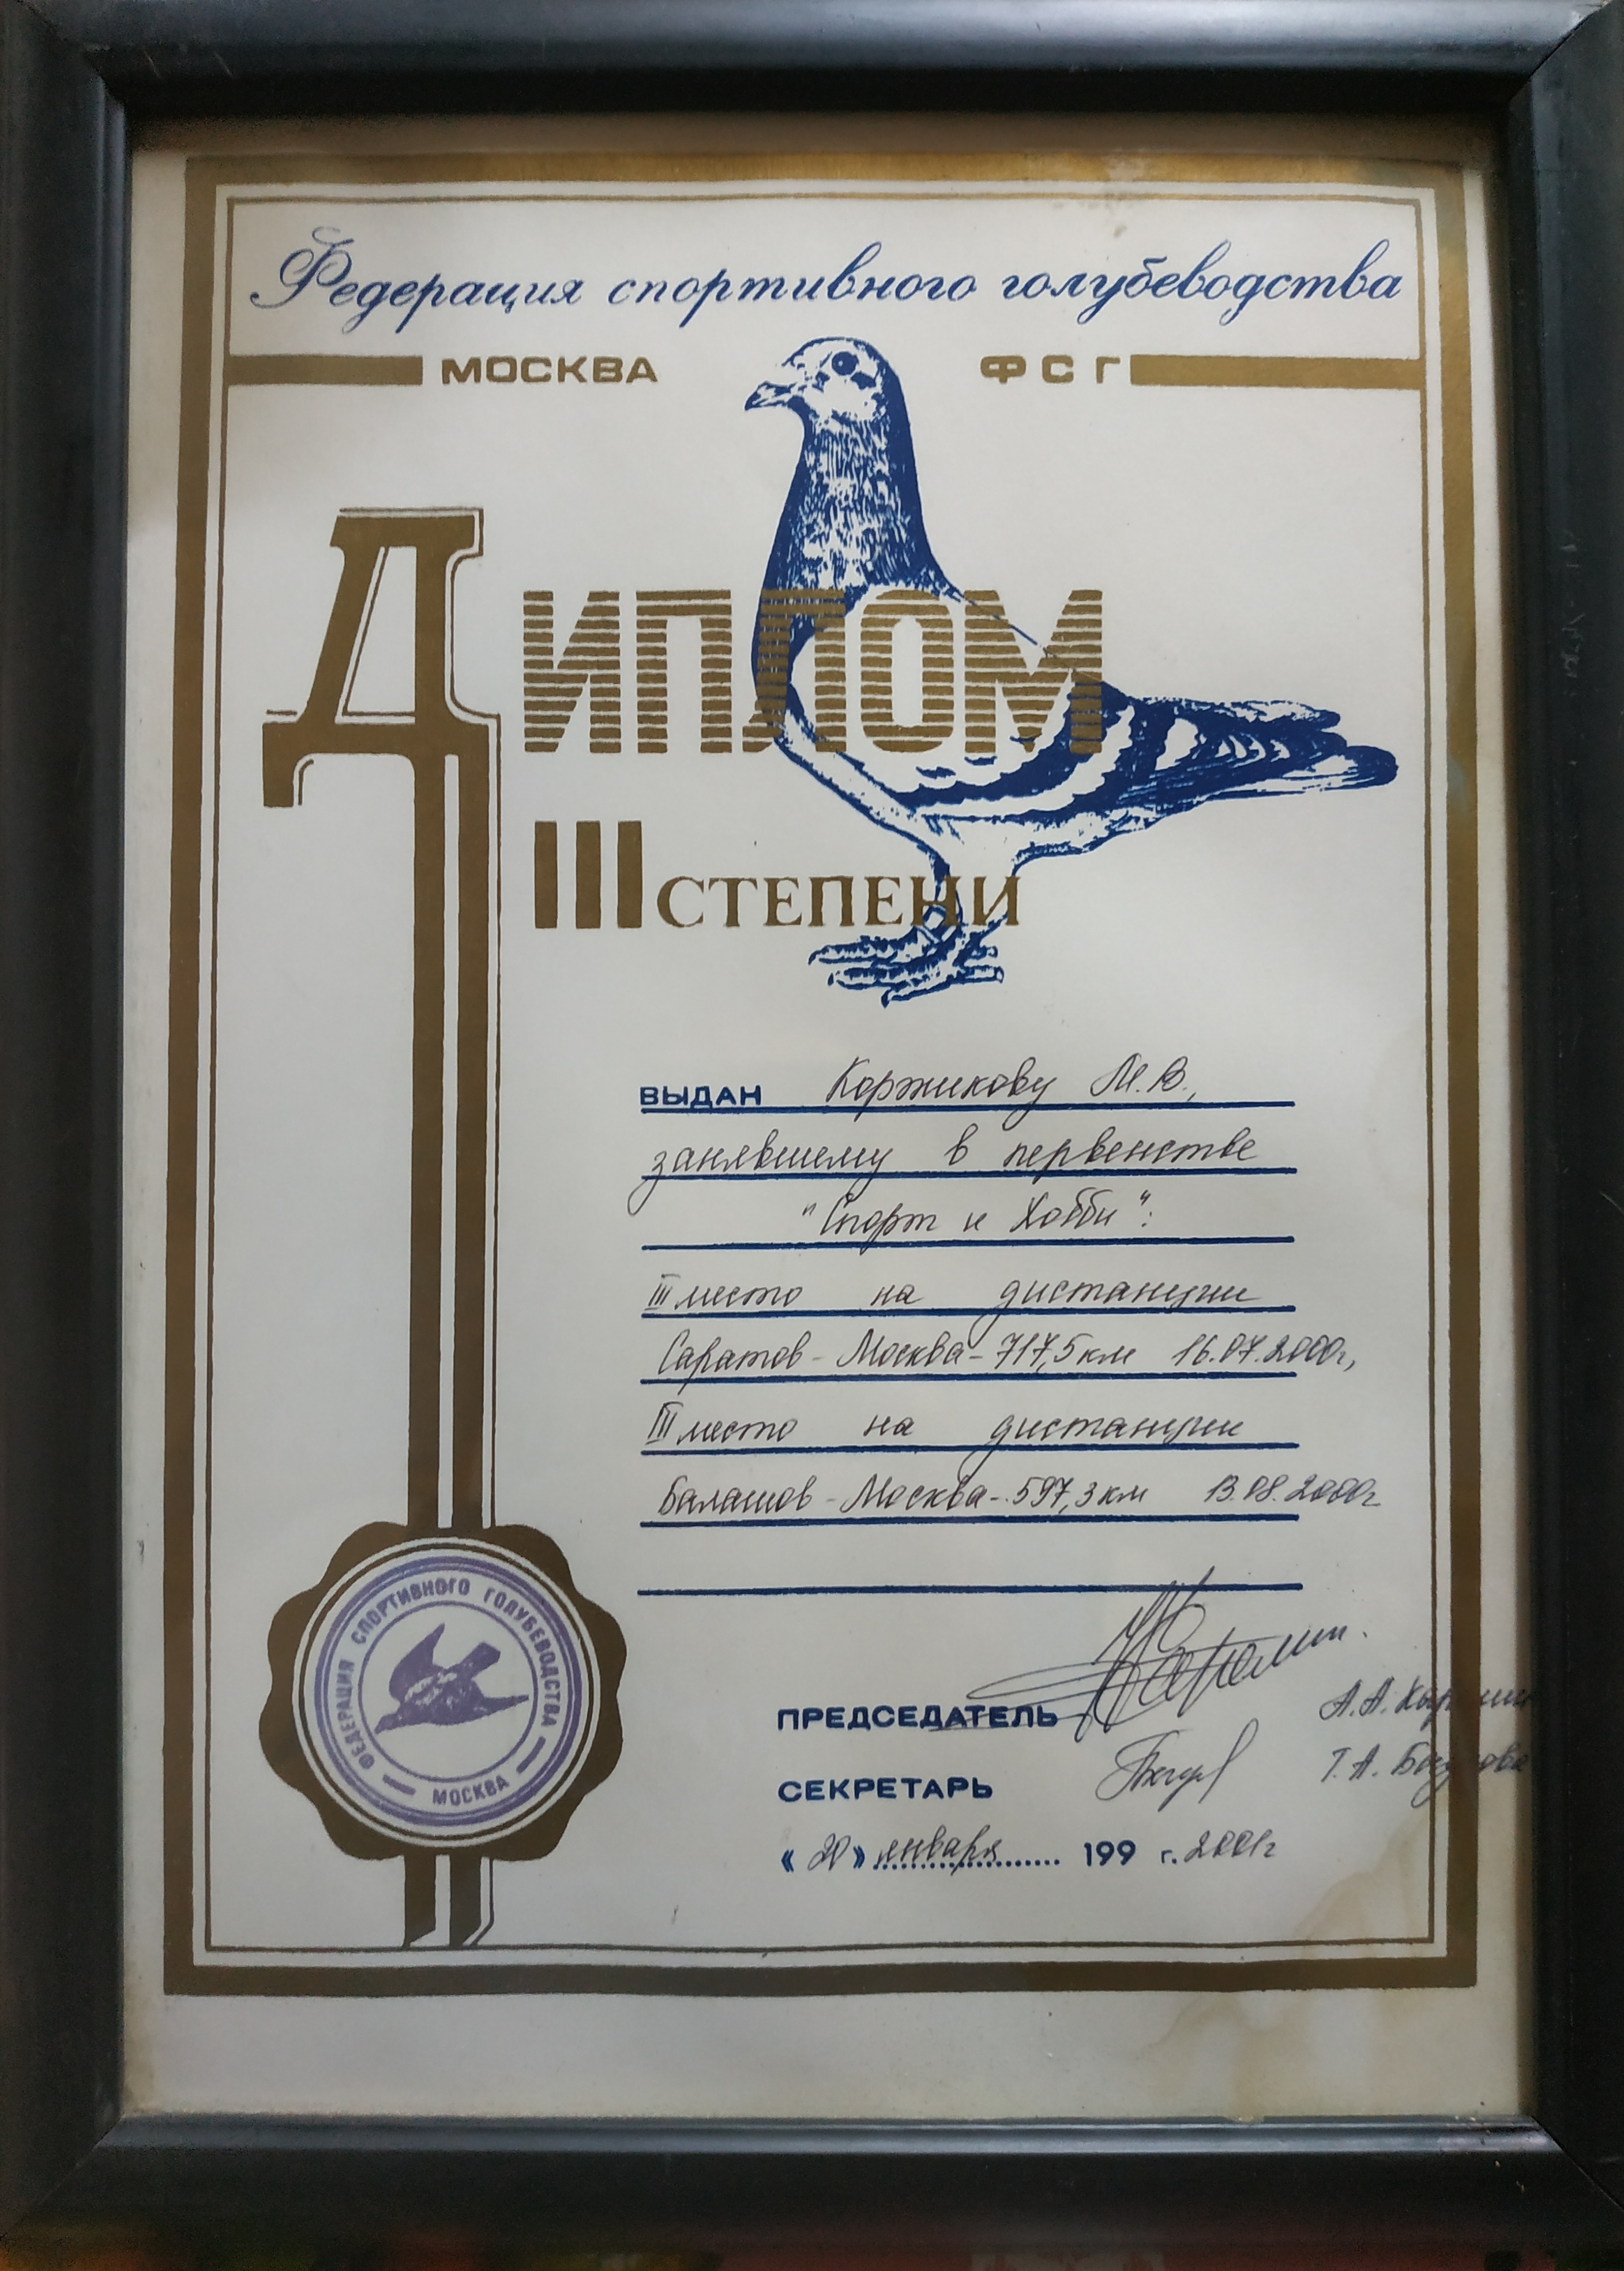 Федерация спортивного голубеводства
МОСКВА ФСГ
ДИПЛОМ
III СТЕПЕНИ
ВЫДАН Коржикову М.В.,
занявшему в первенстве
"Спорт и Хобби":
III место на дистанции
Саратов - Москва - 717,5 км 16.07.2000г,
III место на дистанции
Балашов - Москва - 597,3 км 13.08.2000г
ПРЕДСЕДАТЕЛЬ А.А.
СЕКРЕТАРЬ Т.А.
«20» января 199 г. 2001г
ФЕДЕРАЦИЯ СПОРТИВНОГО ГОЛУБЕВОДСТВА
МОСКВА